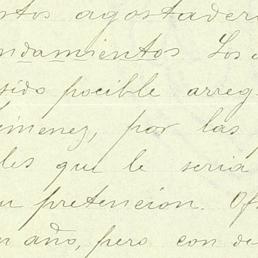 stos agostader
ndamientos Los
sido pocible arreg
imenez, por las
les que le seria
u pretencion. Of
n año, pero con de